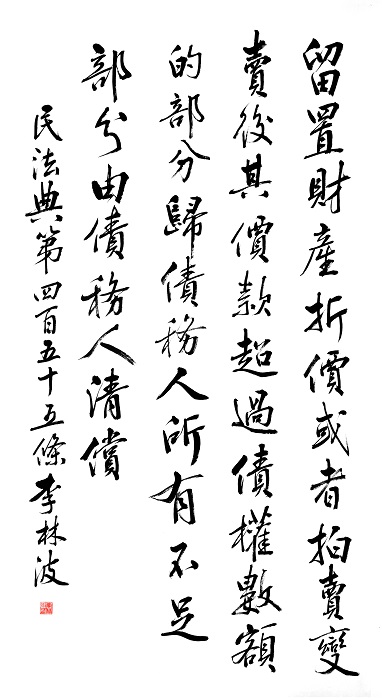 留置財產折價或者拍賣變
賣後其價款超過債權數額
的部分歸債務人所有不足
部分由債務人清償
民法典第四百五十五條李林波